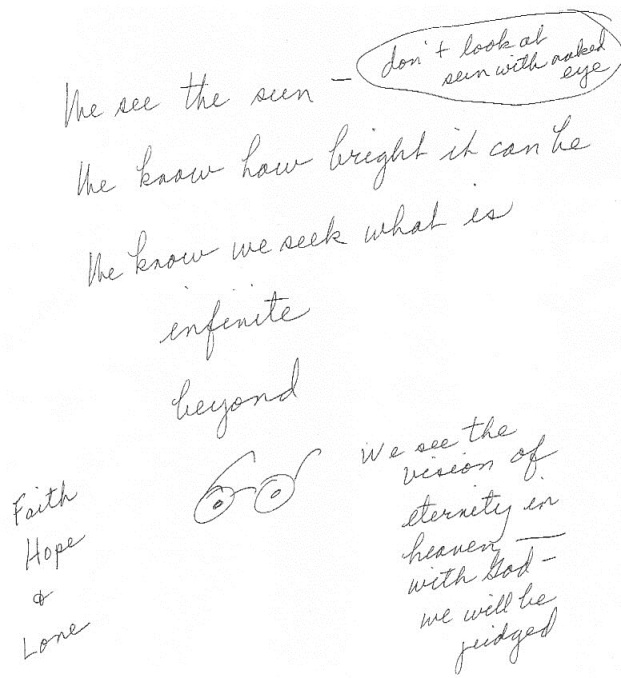 We see the sun –
don't look at
sun with naked
eye
We know how bright it can be
We know we seek what is
infinite
beyond
We see the
vision of
eternity in
heaven —
with God –
we will be
judged
Faith
Hope
&
Love